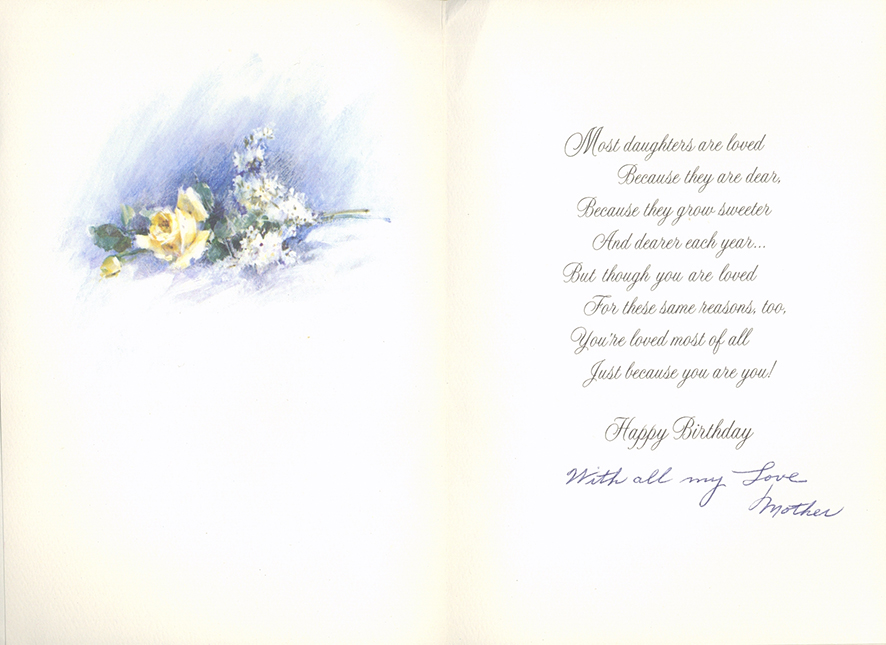 Most daughters are loved
Because they are dear,
Because they grow sweeter
And dearer each year...
But though you are loved
For these same reasons, too,
You're loved most of all
Just because you are you!
Happy Birthday
With all my Love
Mother